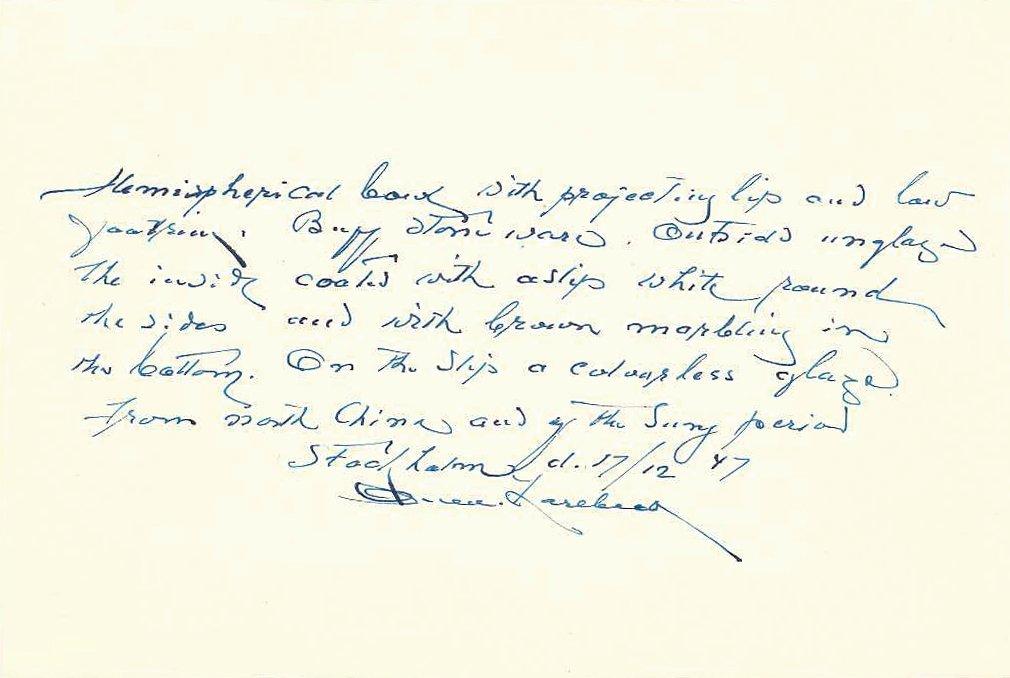 Hemispherical bowl with projecting lip and low
footring. Buff stone ware. Outside unglazed
the inside coated with a slip white round
the sides and with brown marbling in
the bottom. On the slip a colourless glaze.
From north China and of the Sung period
Stockholm d. 17/12 47
Orvar Karlbeck